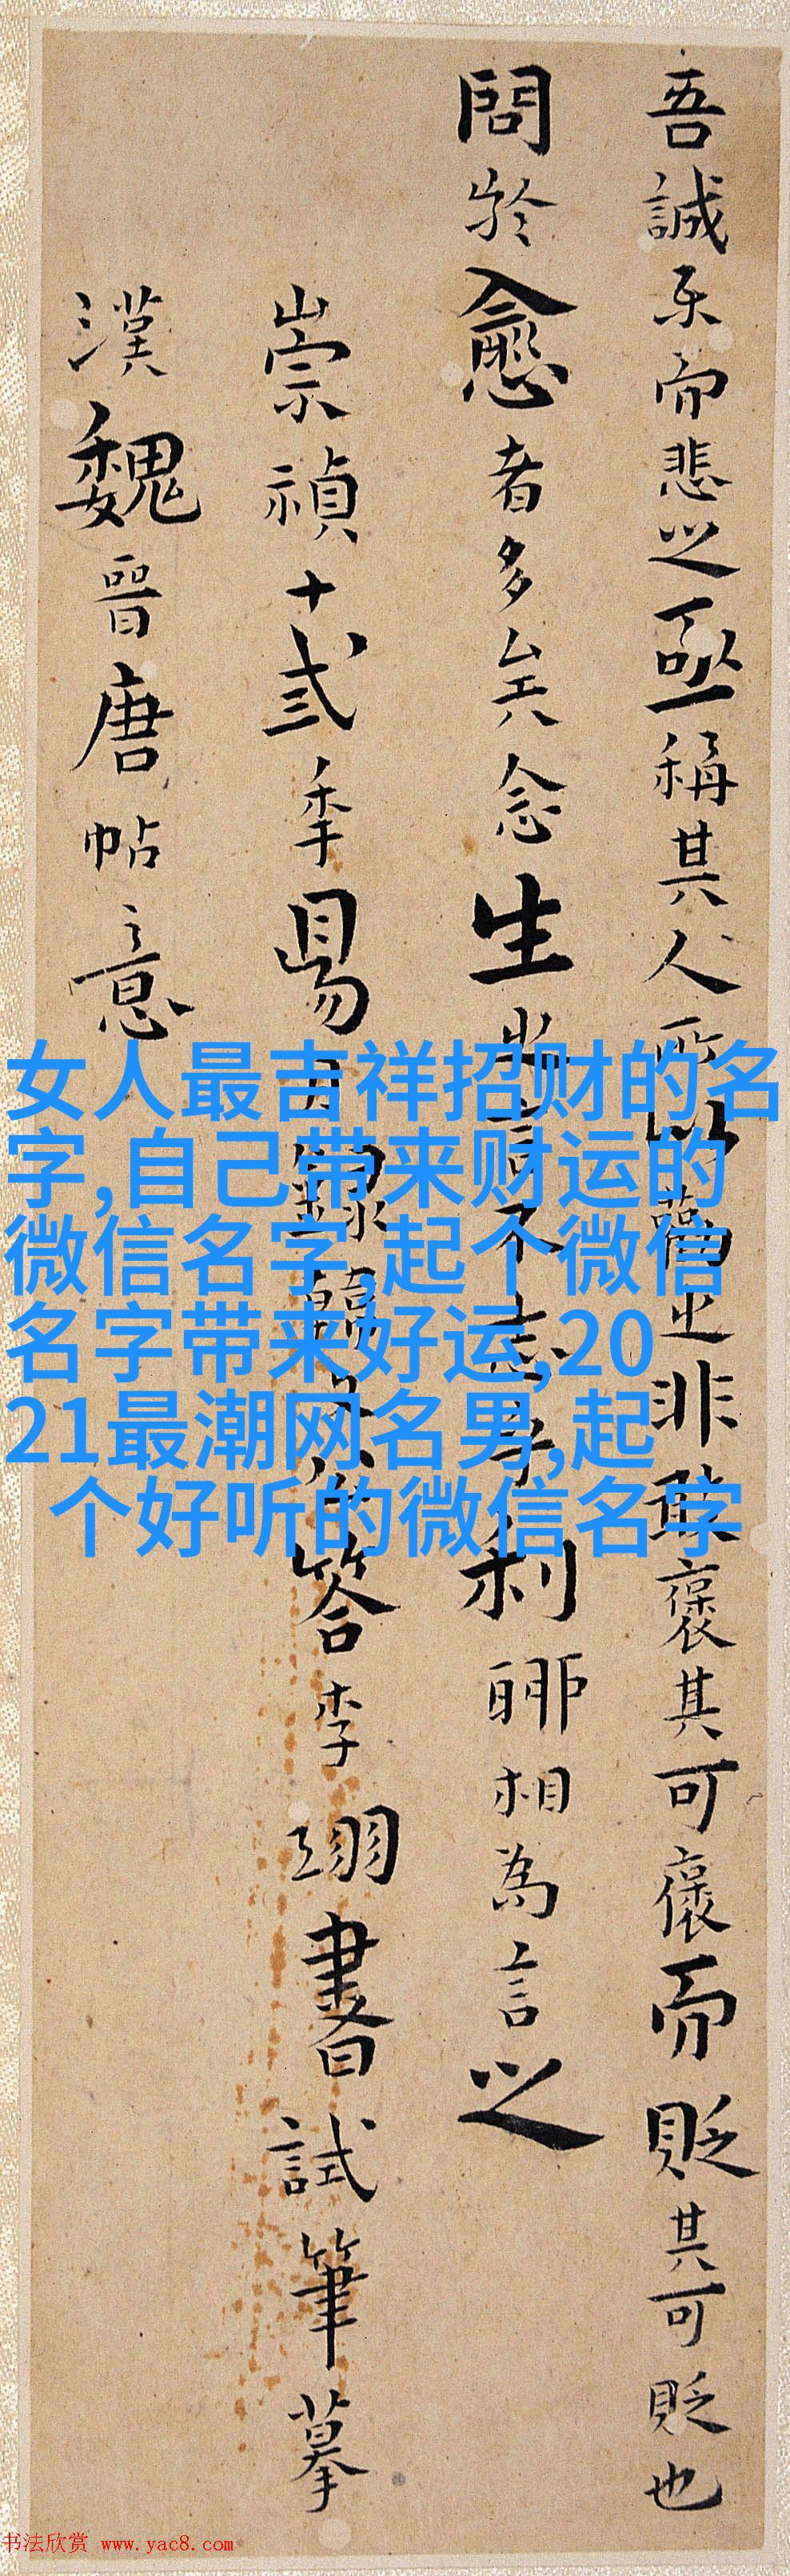 吾誠乐而悲之亟稱其人所以勸之非敢褒其可褒而貶其可貶也
問於愈者多矣念生之言不志乎利聊相為言之
崇禎十弍季昜月錄韓文公答李翊書試筆摹
漢魏晉唐帖意
女人最吉祥招财的名
字,自己带来财运的
微信名字,起个微信
名字带来好运,20
21最潮网名男,起
个好听的微信名字
书法欣赏 www.yac8.com